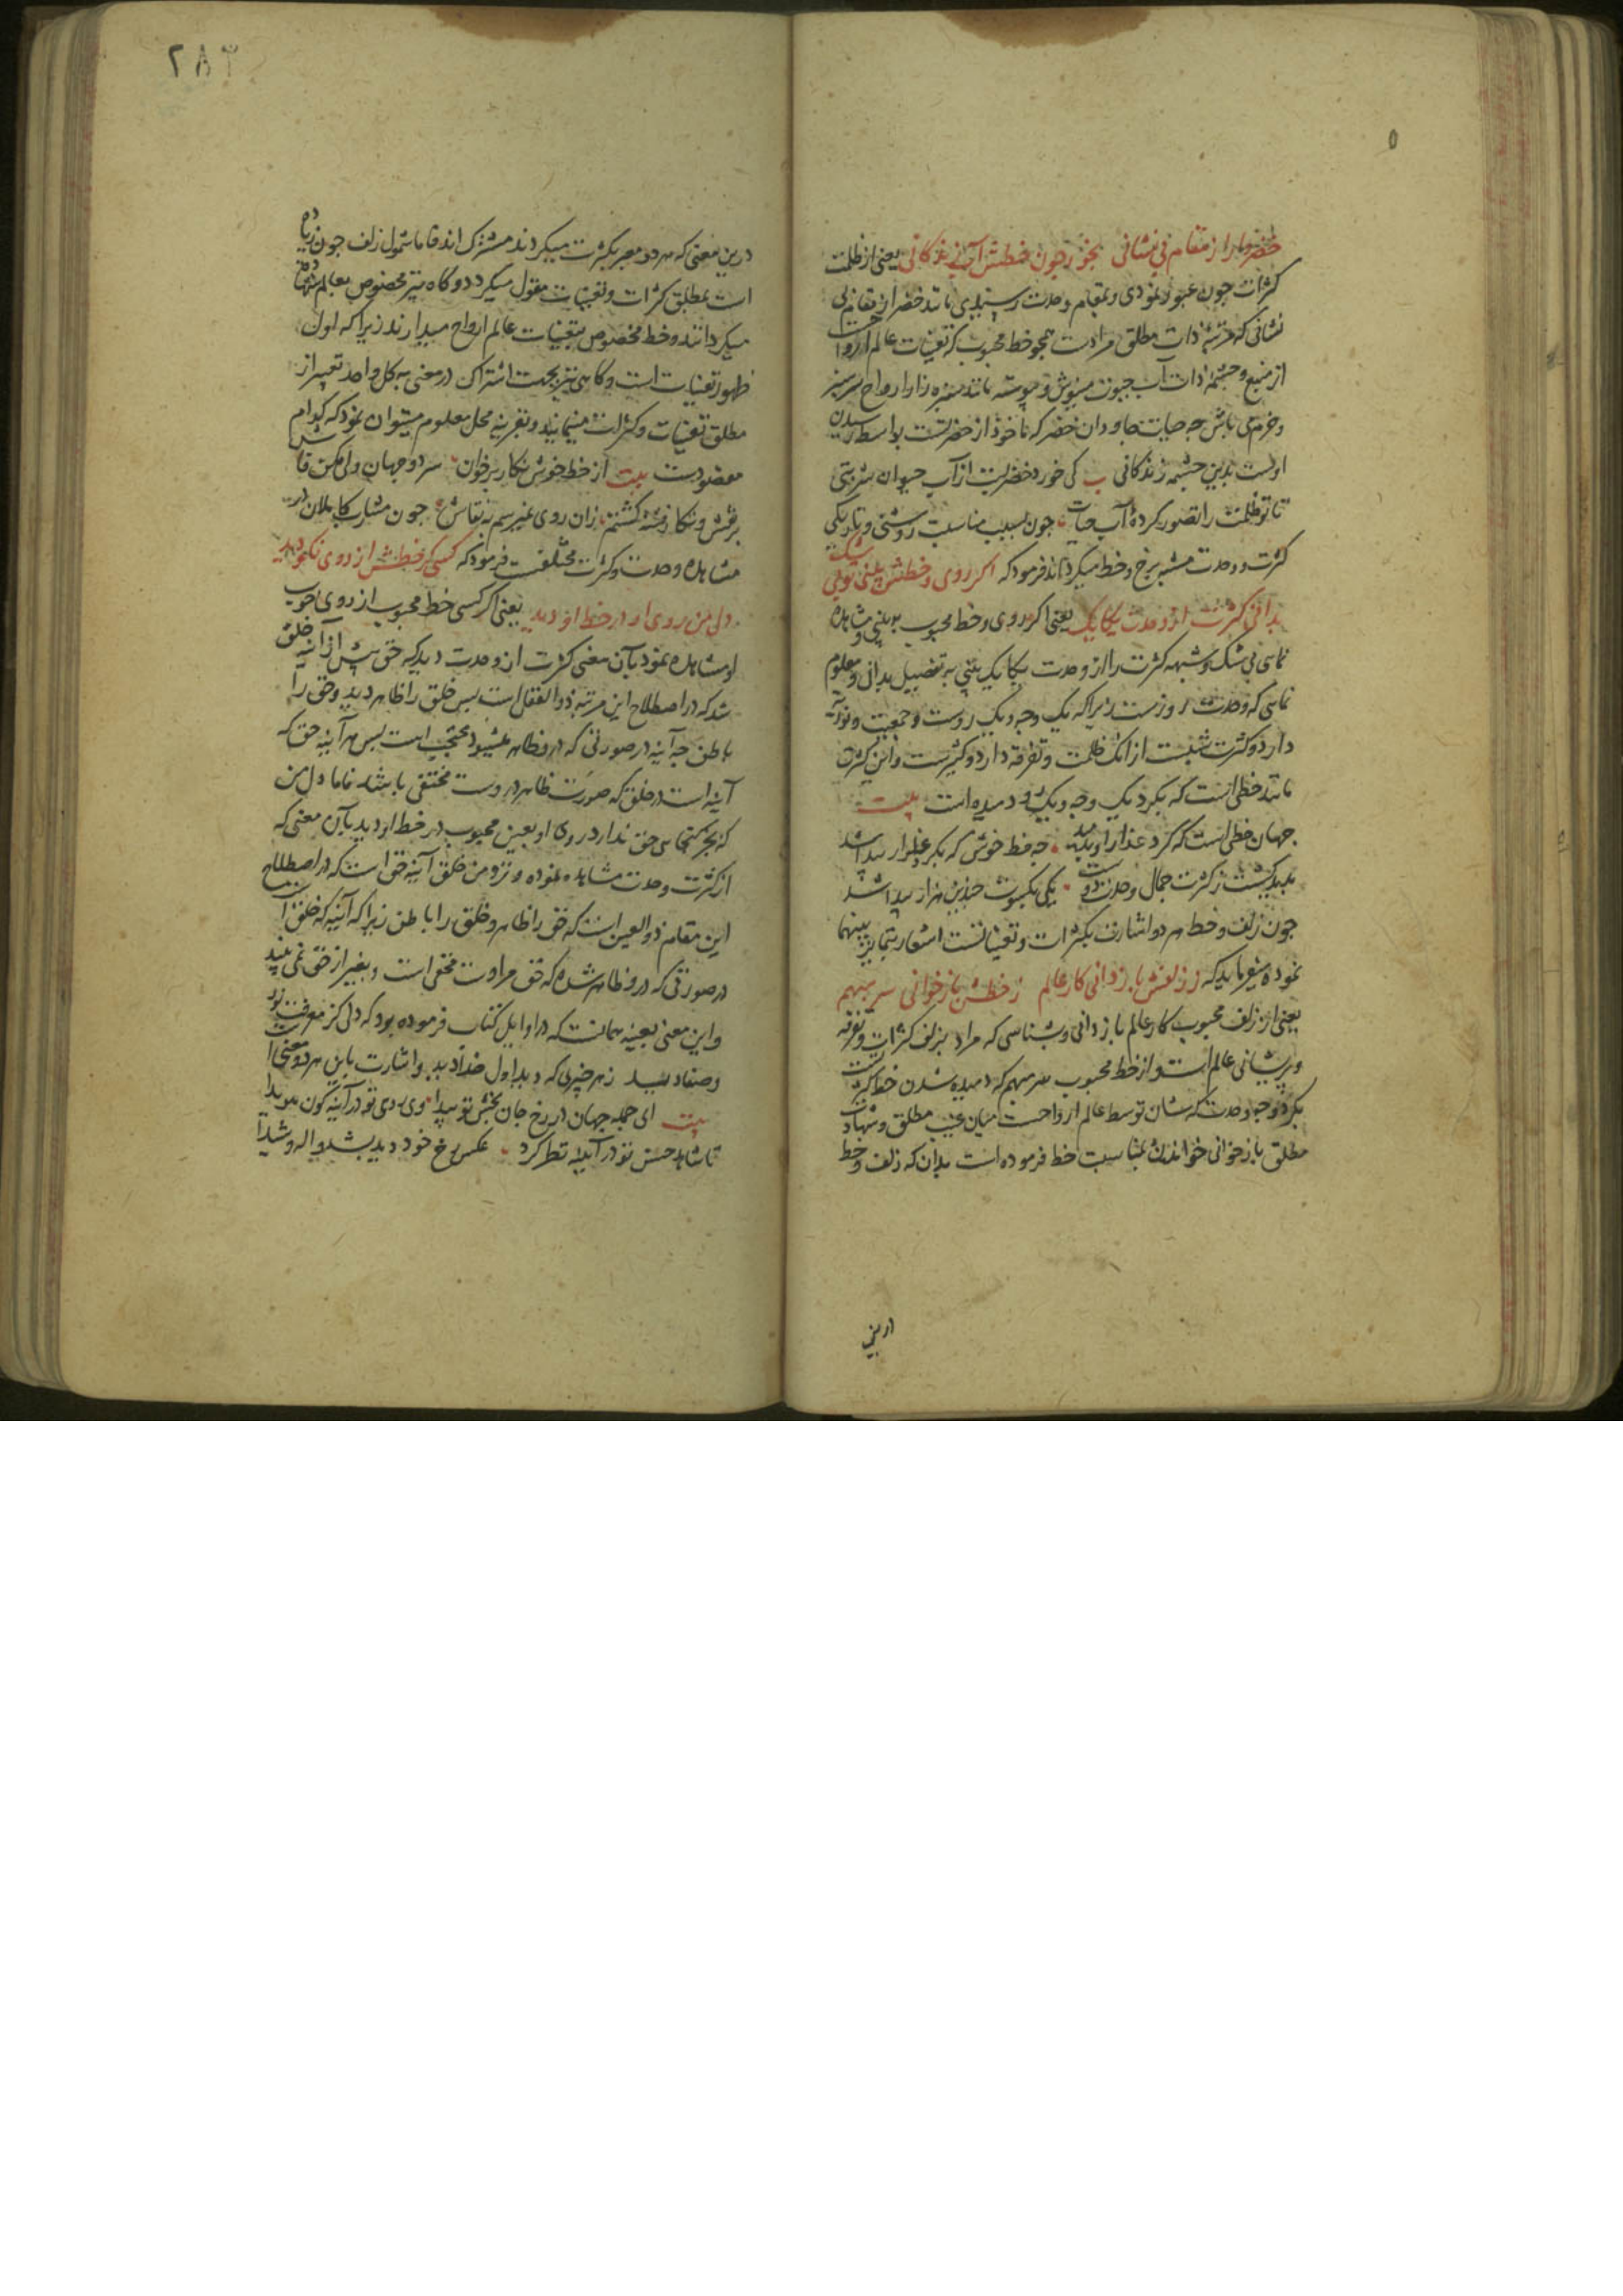 خضروار از مقام بی نشانی بخور چون خطش آب زندکانی یعنی از ظلمت
کثرات چون عبور نمودی و بمقام وحدت رسیدی مانند خضر از مقام بی
نشانی که مرتبهٔ ذات مطلق مرادست همچو خط محبوب که تعینات عالم ارواحست
از منبع و چشمهٔ ذات آب حیوت مینوش و پیوسته مانند سبزه زار ارواح سرسبز
و خرم می باش چه حیات جاودان خضر که ماخوذ از حضرتست بواسطه رسیدن
اوست بدین چشمه زندکانی ب کی خورد خضرت از آب حیوان شربتی
تا تو ظلمت را تصور کردهٔ آب حیات چون بسبب مناسبت روشنی و تاریکی
کثرت و وحدت مشبه برخ و خط میکرداند فرمود که اکر روی و خطش بینی تو بی شک
بدانی کثرت از وحدت یکایک یعنی اکر روی و خط محبوب به بینی و مشاهده
نمای بی شک و شبهه کثرت را از وحدت یکایک یعنی به تفصیل بدانی و معلوم
نمای که وحدت روزست زیرا که یک وجه و یک روست و جمعیت و نورانیت
دارد و کثرت شبست از انک ظلمت و تفرقه دارد و کثیرست و این کثرت
مانند خطی است که بکرد یک وجه و یک رو دمیده است بیت
جهان خطی است که کرد عذار او بدمید چه خط خوش که بکرد عذار پیدا شد
پدید کشت ز کثرت جمال وحدت دوست یکی بکسوت چندین هزار پیدا شد
چون زلف و خط هر دو اشارت بکثرات و تعیناتست اشعار بتمایز بینهما
نموده میفرماید که ز زلفش باز دانی کار عالم ز خطش باز خوانی سر مبهم
یعنی از زلف محبوب کار عالم باز دانی و بشناسی که مراد بزلف کثرات و تفرقه
و پریشانی عالم است و از خط محبوب سر مبهم که دمیده شدن خط کثرت
بکرد وجه وحدت که نشان توسط عالم ارواحست میان غیب مطلق و شهادت
مطلق باز خوانی خواندن بمناسبت خط فرموده است بدان که زلف و خط
درین
درین معنی که هر دو معبر بکثرت میکردند مشترک اند فاما شمول زلف چون زیاده
است بمطلق کثرات و تعینات مقول میکردد و کاه نیز مخصوص بعالم شهادة
میکردانند و خط مخصوص بتعینات عالم ارواح میدارند زیرا که اول
ظهور تعینات است و کاهی نیز بجهت اشتراک در معنی به کل واحد تعبیر از
مطلق تعینات و کثرات مینمایند و بقرینه محل معلوم میتوان نمود که کدام
مقصودست بیت از خط خوش نکار برخوان سر دو جهان ولی مکن فاش
بر نقش و نکار فتنه کشتم زان روی نمیرسم به نقاش چون مشارب کاملان در
مشاهده وحدت و کثرت مختلفست فرمود که کسی کر خطش از روی نکو دید
دل من روی او در خط او دید یعنی اکر کسی خط محبوب از روی خوب
او مشاهده نمود بآن معنی کثرت از وحدت دید که حق پیش او آئینه خلق
شد که در اصطلاح این مرتبه ذو العقل است پس خلق را ظاهر دید و حق را
باطن چه آینه در صورتی که در و ظاهر میشود محتجب است پس هر آینه حق که
آینه است در خلق که صورت ظاهر در وست مختفی باشد فاما دل من
که بجز بینائی حق ندارد روی او بعین محبوب در خط او دید بآن معنی که
از کثرت وحدت مشاهده نموده و نزد من خلق آینه حق است که در اصطلاح
این مقام ذو العین است که حق را ظاهر و خلق را باطن زیرا که آینه که خلق است
در صورتی که در و ظاهر شده که حق مرادست مخفی است و بغیر از حق نمی بیند
و این معنی بعینه همانست که در اوایل کتاب فرموده بود که دلی کز معرفت نور
و صفا دید ز هر چیزی که دید اول خدا دید و اشارت باین هر دو معنی است
بیت ای جمله جهان در رخ جان بخش تو پیدا وی روی تو در آینه کون هویدا
تا شاهد حسن تو در آینه نظر کرد عکس رخ خود دید بشد واله و شیدا